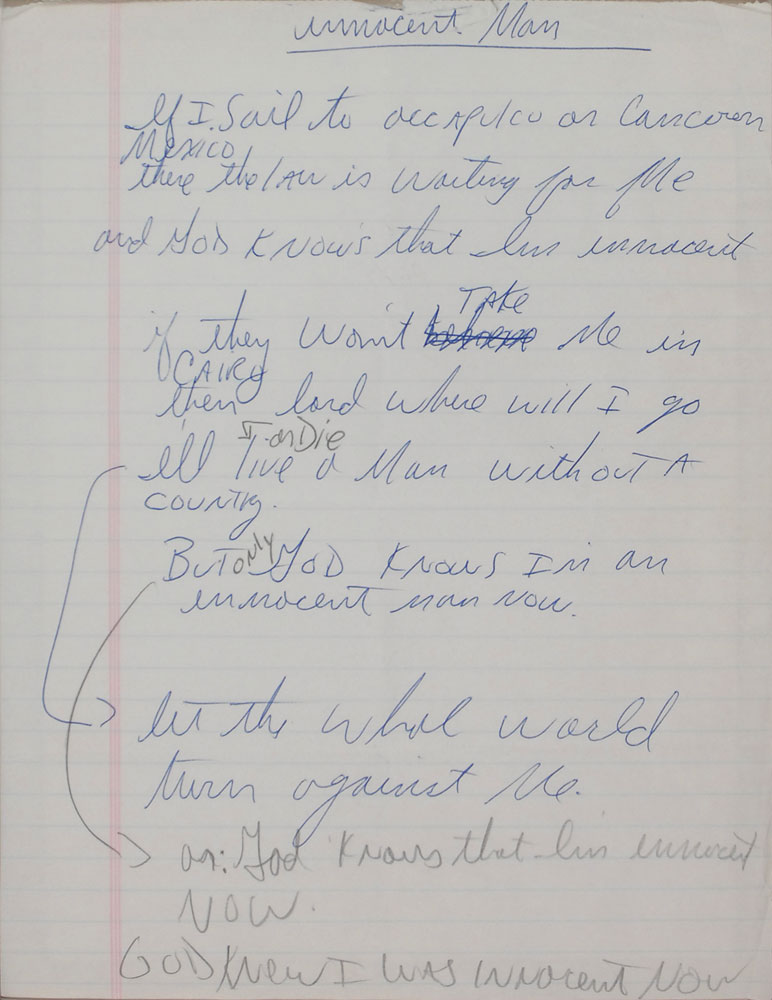 innocent Man
If I Sail to accApulco or Cancoun
Mexico
there the lAw is waiting for Me
and GOD KNOWS that Im innocent
TAKE
if they Won't Me in
CAIRO
then lord where will I go
I or Die
ill live a Man without A
COUNTRY.
BUT ONLY GOD KNOWS Im an
innocent man Now.
let the whol world
turn against Me.
or: God Knows that Im innocent
NOW.
GOD KNEW I WAS INNOCENT NOW